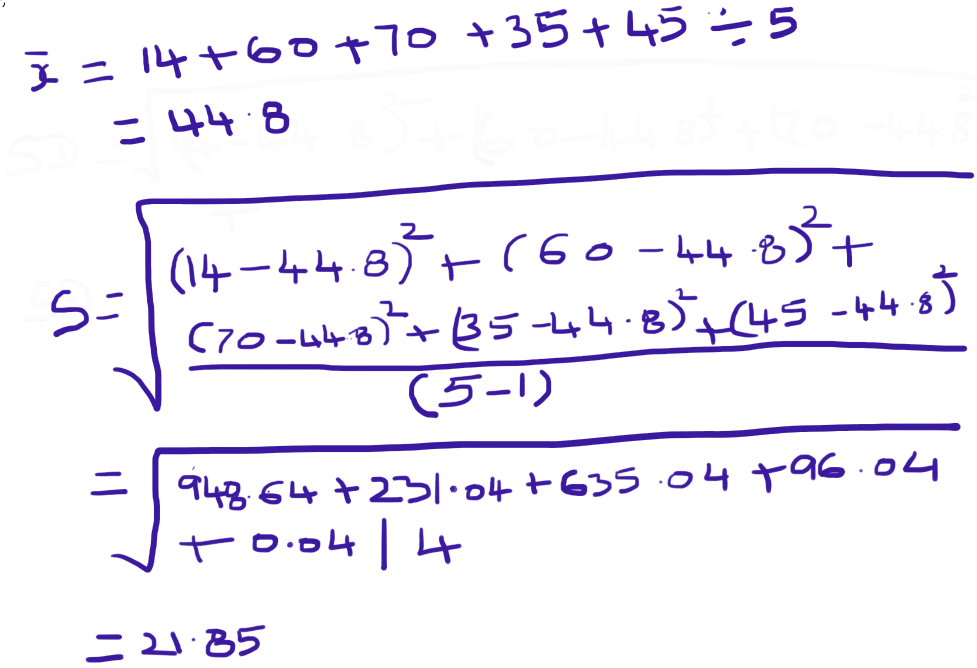 x̄ = 14+60+70+35+45÷5
= 44.8
S = √ (14-44.8)² + (60-44.8)² +
(70-44.8)² + (35-44.8)² + (45-44.8)²
(5-1)
= √ 948.64 + 231.04 + 635.04 + 96.04
+ 0.04 | 4
= 21.85